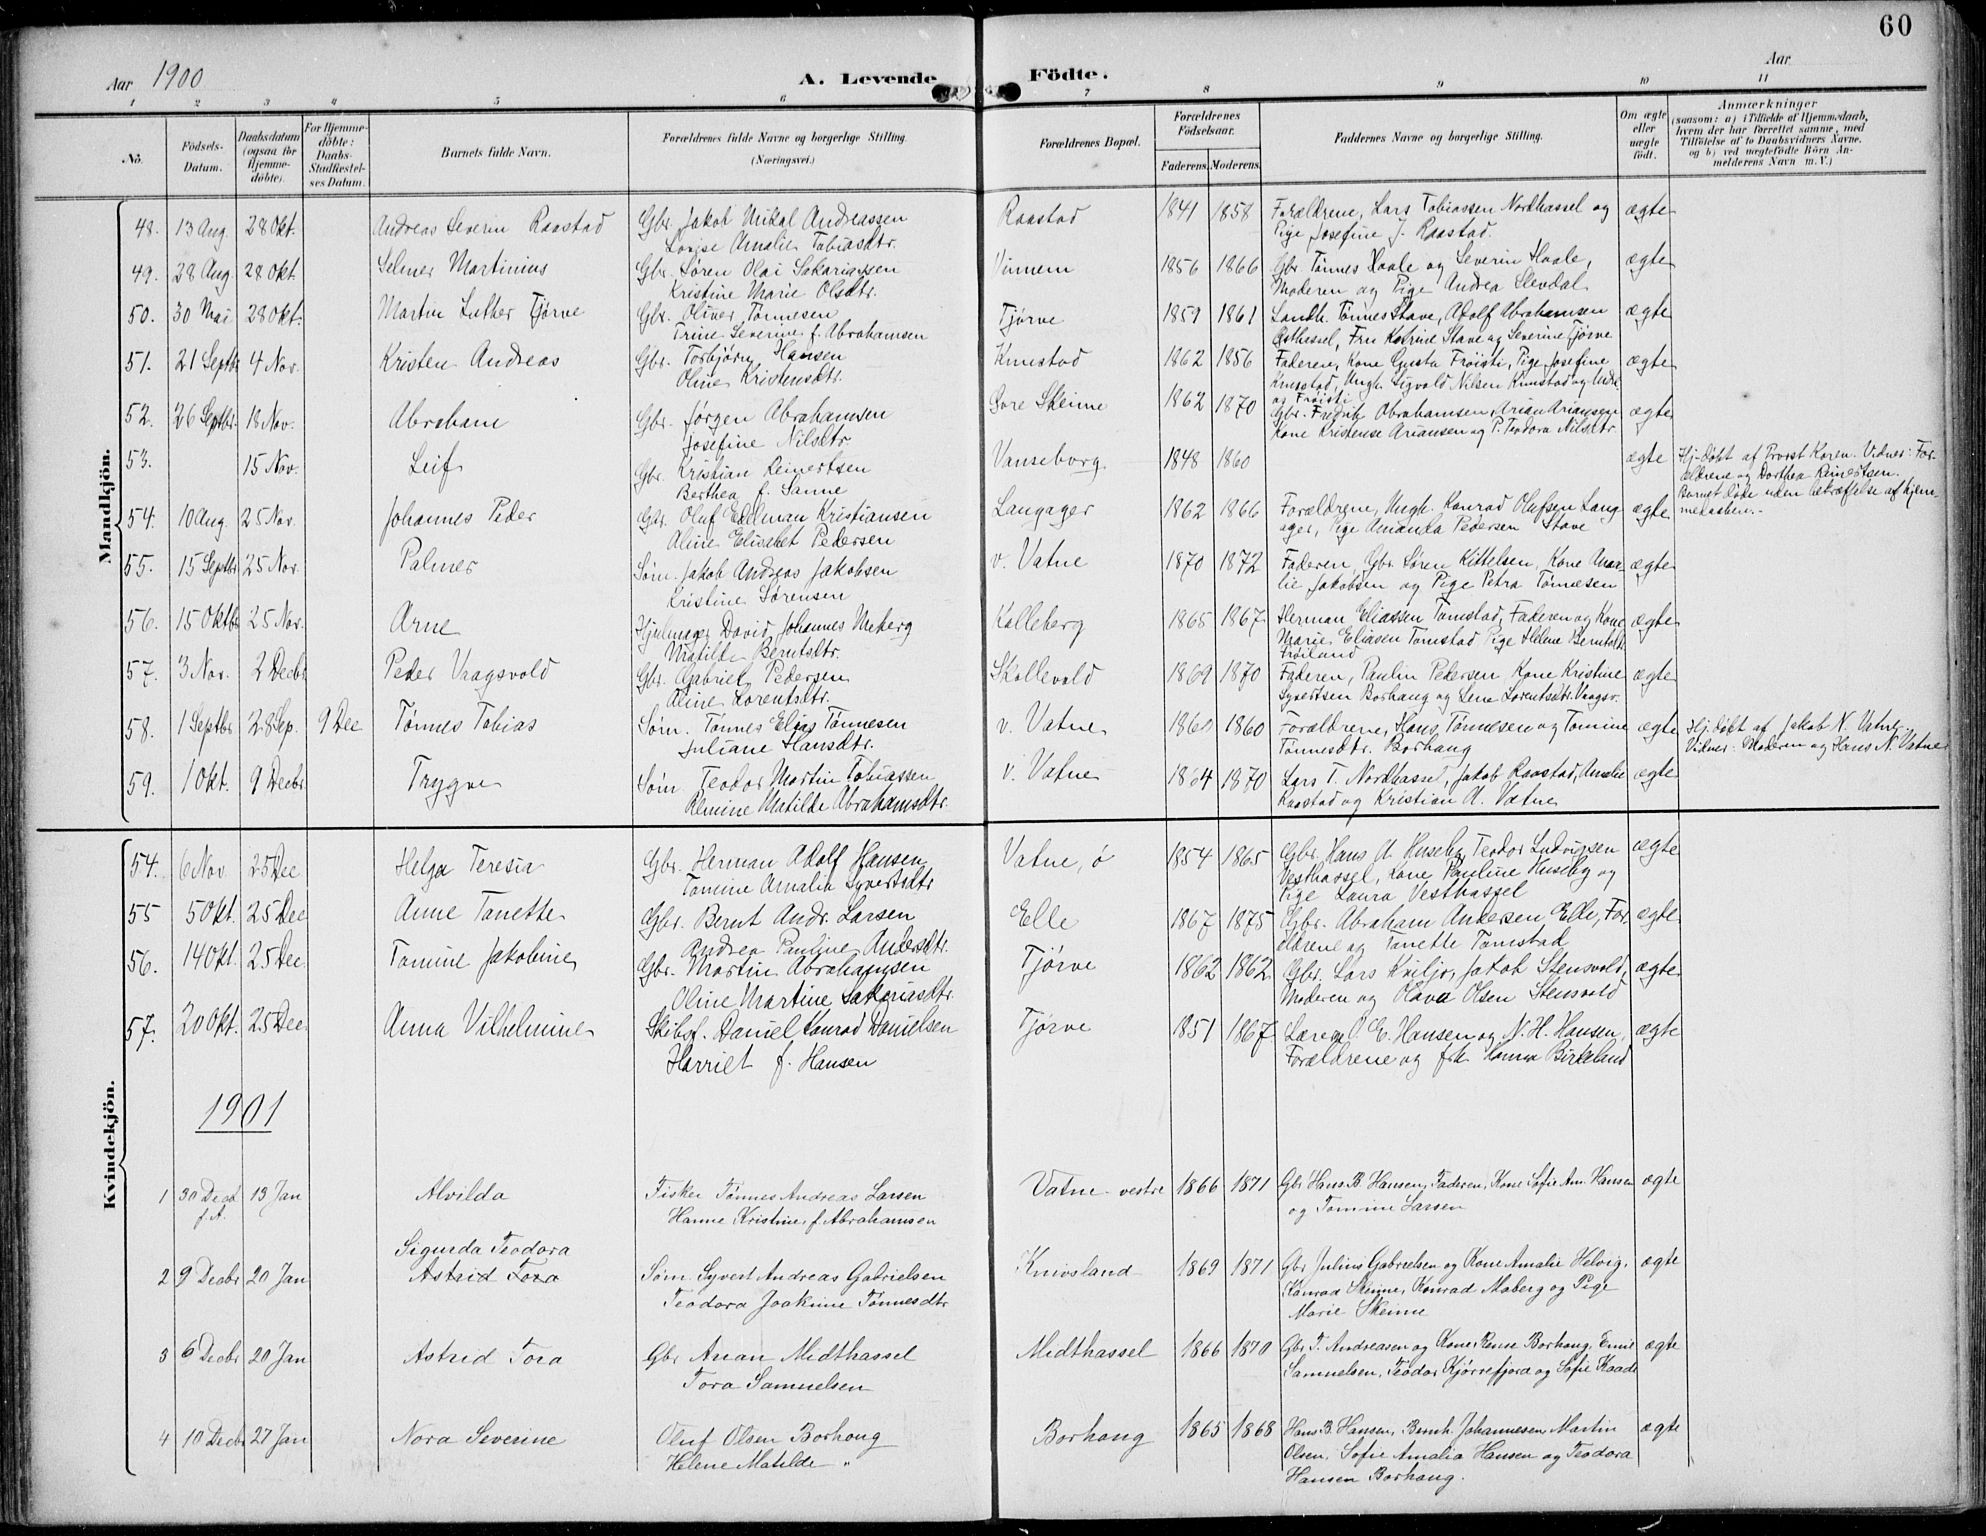 60
Aar 1900
A. Levende Födte.
Aar
1 2 3 4 5 6 7 8 9 10 11
No.
Födsels-Datum.
Daabsdatum (ogsaa för Hjemme-döbte).
For Hjemme-döbte: Daabs-Stadfæstel-ses Datum.
Barnets fulde Navn.
Forældrenes fulde Navne og borgerlige Stilling (Næringsvei.)
Forældrenes Bopæl.
Forældrenes Födselsaar.
Faderens. Moderens.
Faddernes Navne og borgerlige Stilling.
Om ægte eller uægte födt.
Anmærkninger
(saasom: a) i Tilfælde af Hjemmedaab, hvem der har forrettet samme, med Tilföielse af to Daabsvidners Navne, og b) ved uægtefödte Börn An-melderens Navn m. V.)
Mandkjön.
48. 13 Aug. 28 Okt. Andreas Severin Raastad Gbr. Jakob Mikal Andreassen Raastad 1841 1858 Forældrene, Lars Tobiassen Nordhassel og ægte
Lovise Amalie Tobiasdtr. Pige Josefine J. Raastad.
49. 28 Aug 28 Okt Selmer Martinius Gbr. Søren Olai Sakariassen Vinnem 1856 1866 Gbr Tønnes Haale og Severin Haale, ægte
Kristine Marie Olsdtr. Moderen og Pige Andrea Slevdal
50. 30 Mai 28 Okt. Martin Luther Tjørve Gbr. Oliver Tønnesen Tjørve 1859 1861 Landh. Tønnes Stave, Adolf Abrahamsen ægte
Trine Severine f. Abrahamsen Østhassel, Fru Katrine Stave og Severine Tjørve
51. 21 Septbr 4 Nov. Kristen Andreas Gbr. Torbjørn Hansen Kumstad 1862 1856 Faderen, Kone Gusta Frøisti, Pige Josefine ægte
Oline Kristensdtr. Kumstad, Ungk. Sigvald Nilsen Kumstad og
og Frøisti
52. 26 Septbr. 18 Nov. Abraham Gbr. Jørgen Abrahamsen Øvre Skeime 1862 1870 Gbr. Fredrik Abrahamsen, Arian Ariansen ægte
Josefine Nilsdtr Kone Kristense Ariansen og P. Teodora Nilsdtr
53. 15 Nov. Leif Gbr. Kristian Reinertsen Vanseborg 1848 1860 ægte Hj-døbt af Provst Koren. Vidner: For-
Berthea f. Sanne ældrene og Dorthea Reinertsen.
Barnet døde uden bekræftelse af hjem-
medaaben.-
54. 10 Aug. 25 Nov. Johannes Peder Gbr. Oluf Edelman Kristiansen Langager 1862 1866 Forældrene, Ungk. Konrad Olufsen Lang- ægte
Aline Elisabet Pedersen ager, Pige Amanda Pedersen Stave
55. 15 Septbr 25 Nov. Palmer Søm. Jakob Andreas Jakobsen v. Vatne 1870 1872 Faderen, Gbr Søren Kittelsen, Kone Ama- ægte
Kristine Sørensen lie Jakobsen og Pige Petra Tønnesen
56. 15 Oktbr 25 Nov. Arne Hjulmager David Johannes Meberg Kalleberg 1865 1867 Herman Eliassen Tomstad, Faderen og Kone ægte
Matilde Berntsdtr. Marie Eliasen Tomstad Pige Helene Berntsdtr
Frøiland
57. 3 Nov. 2 Decbr Peder Vaagsvold Gbr. Gabriel Pedersen Skollevold 1869 1870 Faderen, Paulin Pedersen Kone Kristine ægte
Aline Lorentsdtr. Syvertsen Borhaug og Lene Lorentsdtr. Vaagsv.
58. 1 Septbr 28 Sep. 9 Dec Tønnes Tobias Søm. Tønnes Elias Tønnesen v. Vatne 1860 Forældrene, Hans Tønnesen og Tomine ægte Hj.døbt af Jakob N. Vatne.
Juliane Hansdtr. Tønnesdtr. Borhaug Vidner: Moderen og Hans N. Vatne
59. 1 Okt. 9 Decbr Trygve Søm. Teodor Martin Tobiassen v. Vatne 1864 1870 Lars T. Nordhassel, Jakob Raastad, Amalie ægte
Elmine Matilde Abrahamsdtr. Raastad og Kristian A. Vatne
Kvindekjön.
54. 6 Nov. 25 Dec Helga Teresia Gbr. Herman Adolf Hansen Vatne, ø 1854 1865 Gbr. Hans A. Huseby, Teodor Ludvigsen ægte
Tomine Amalia Syvertsdtr Vesthassel, Kone Pauline Huseby og
Pige Laura Vesthassel
55 5 Okt. 25 Dec Anne Tanette Gbr. Bernt Andr. Larsen Elle 1867 1875 Gbr. Abraham Andersen Elle, For- ægte
Andrea Pauline Andersdtr. ældrene og Tanette Tomstad
56. 14 Okt. 25 Dec. Tomine Jakobine Gbr. Martin Abrahamsen Tjørve 1862 1862 Gbr. Lars Kviljo, Jakob Stensvold, ægte
Oline Martine Sakariasdtr. Moderen og Olava Olsen Stensvold
57. 20 Okt. 25 Dec. Anna Vilhelmine Skibsf. Daniel Konrad Danielsen Tjørve 1851 1867 Lærer O. E. Hansen og N. H. Hansen, ægte
Harriet f. Hansen Forældrene og frk Hanna Birkeland
1901
1 30 Decb 13 Jan Alvilda Fisker Tønnes Andreas Larsen Vatne vestre 1866 1871 Gbr Hans B Hansen, Faderen, Kone Sofie Am. Hansen ægte
f. A. Hanne Kristine f. Abrahamsen og Tomine Larsen
Sigurda Teodora
2 9 Decbr 20 Jan Astrid Tora Søm. Syvert Andreas Gabrielsen Knivsland 1869 1871 Gbr Julius Gabrielsen og Kone Amalie Helvig, ægte
Teodora Joakine Tønnesdtr Konrad Skeime, Konrad Moberg og Pige
Marie Skeime
3 6 Decbr 20 Jan Astrid Tora Gbr Arian Midthassel Midthassel 1866 1870 Gbr T. Andreasen og Kone Rense Borhaug, Emil ægte
Tora Samuelsen Samuelsen, Teodor Kjørrefjord og Sofie Kaade
4 10 Decbr 27 Jan Nora Severine Oluf Olsen Borhaug Borhaug 1865 1868 Hans B. Hansen, Bernh. Johannesen Martin ægte
Helene Matilde " Olsen, Sofie Amalia Hansen og Teodora
Hansen Borhaug.